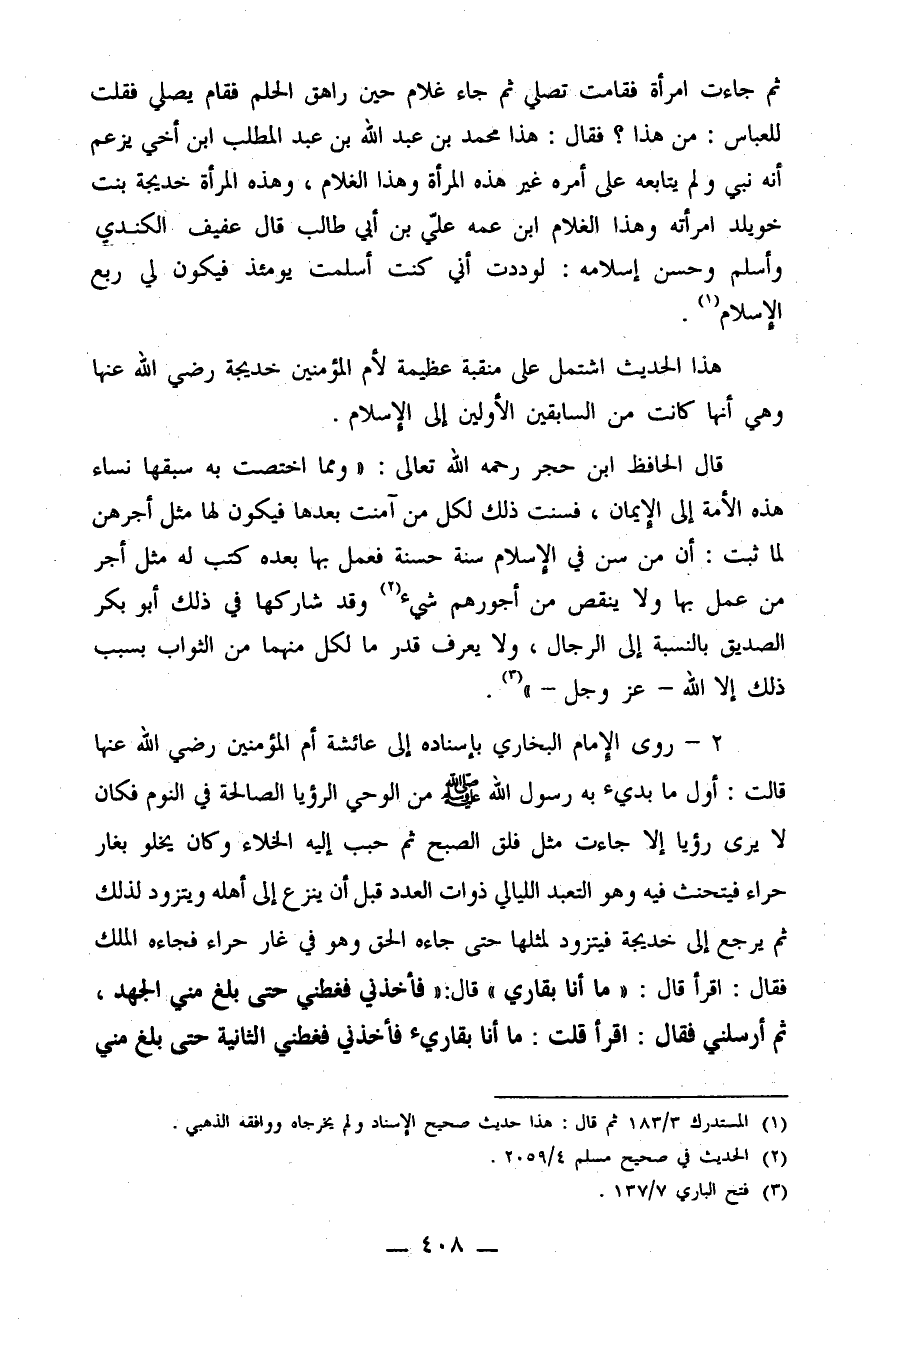 ثم جاءت امرأة فقامت تصلي ثم جاء غلام حين راهق الحلم فقام يصلي فقلت
للعباس : من هذا ؟ فقال : هذا محمد بن عبد الله بن عبد المطلب ابن أخي يزعم
أنه نبي ولم يتابعه على أمره غير هذه المرأة وهذا الغلام ، وهذه المرأة خديجة بنت
خويلد امرأته وهذا الغلام ابن عمه عليّ بن أبي طالب قال عفيف الكندي
وأسلم وحسن إسلامه : لوددت أني كنت أسلمت يومئذ فيكون لي ربع
الإسلام(١) .
هذا الحديث اشتمل على منقبة عظيمة لأم المؤمنين خديجة رضي الله عنها
وهي أنها كانت من السابقين الأولين إلى الإسلام .
قال الحافظ ابن حجر رحمه الله تعالى : « ومما اختصت به سبقها نساء
هذه الأمة إلى الإيمان ، فسنت ذلك لكل من آمنت بعدها فيكون لها مثل أجرهن
لما ثبت : أن من سن في الإسلام سنة حسنة فعمل بها بعده كتب له مثل أجر
من عمل بها ولا ينقص من أجورهم شيء(٢) وقد شاركها في ذلك أبو بكر
الصديق بالنسبة إلى الرجال ، ولا يعرف قدر ما لكل منهما من الثواب بسبب
ذلك إلا الله – عز وجل – »(٣) .
٢ – روى الإمام البخاري بإسناده إلى عائشة أم المؤمنين رضي الله عنها
قالت : أول ما بديء به رسول الله ﷺ من الوحي الرؤيا الصالحة في النوم فكان
لا يرى رؤيا إلا جاءت مثل فلق الصبح ثم حبب إليه الخلاء وكان يخلو بغار
حراء فيتحنث فيه وهو التعبد الليالي ذوات العدد قبل أن ينزع إلى أهله ويتزود لذلك
ثم يرجع إلى خديجة فيتزود لمثلها حتى جاءه الحق وهو في غار حراء فجاءه الملك
فقال : اقرأ قال : « ما أنا بقاري » قال:« فأخذني فغطني حتى بلغ مني الجهد ،
ثم أرسلني فقال : اقرأ قلت : ما أنا بقاريء فأخذني فغطني الثانية حتى بلغ مني
(١) المستدرك ١٨٣/٣ ثم قال : هذا حديث صحيح الإسناد ولم يخرجاه ووافقه الذهبي .
(٢) الحديث في صحيح مسلم ٢٠٥٩/٤ .
(٣) فتح الباري ١٣٧/٧ .
— ٤٠٨ —